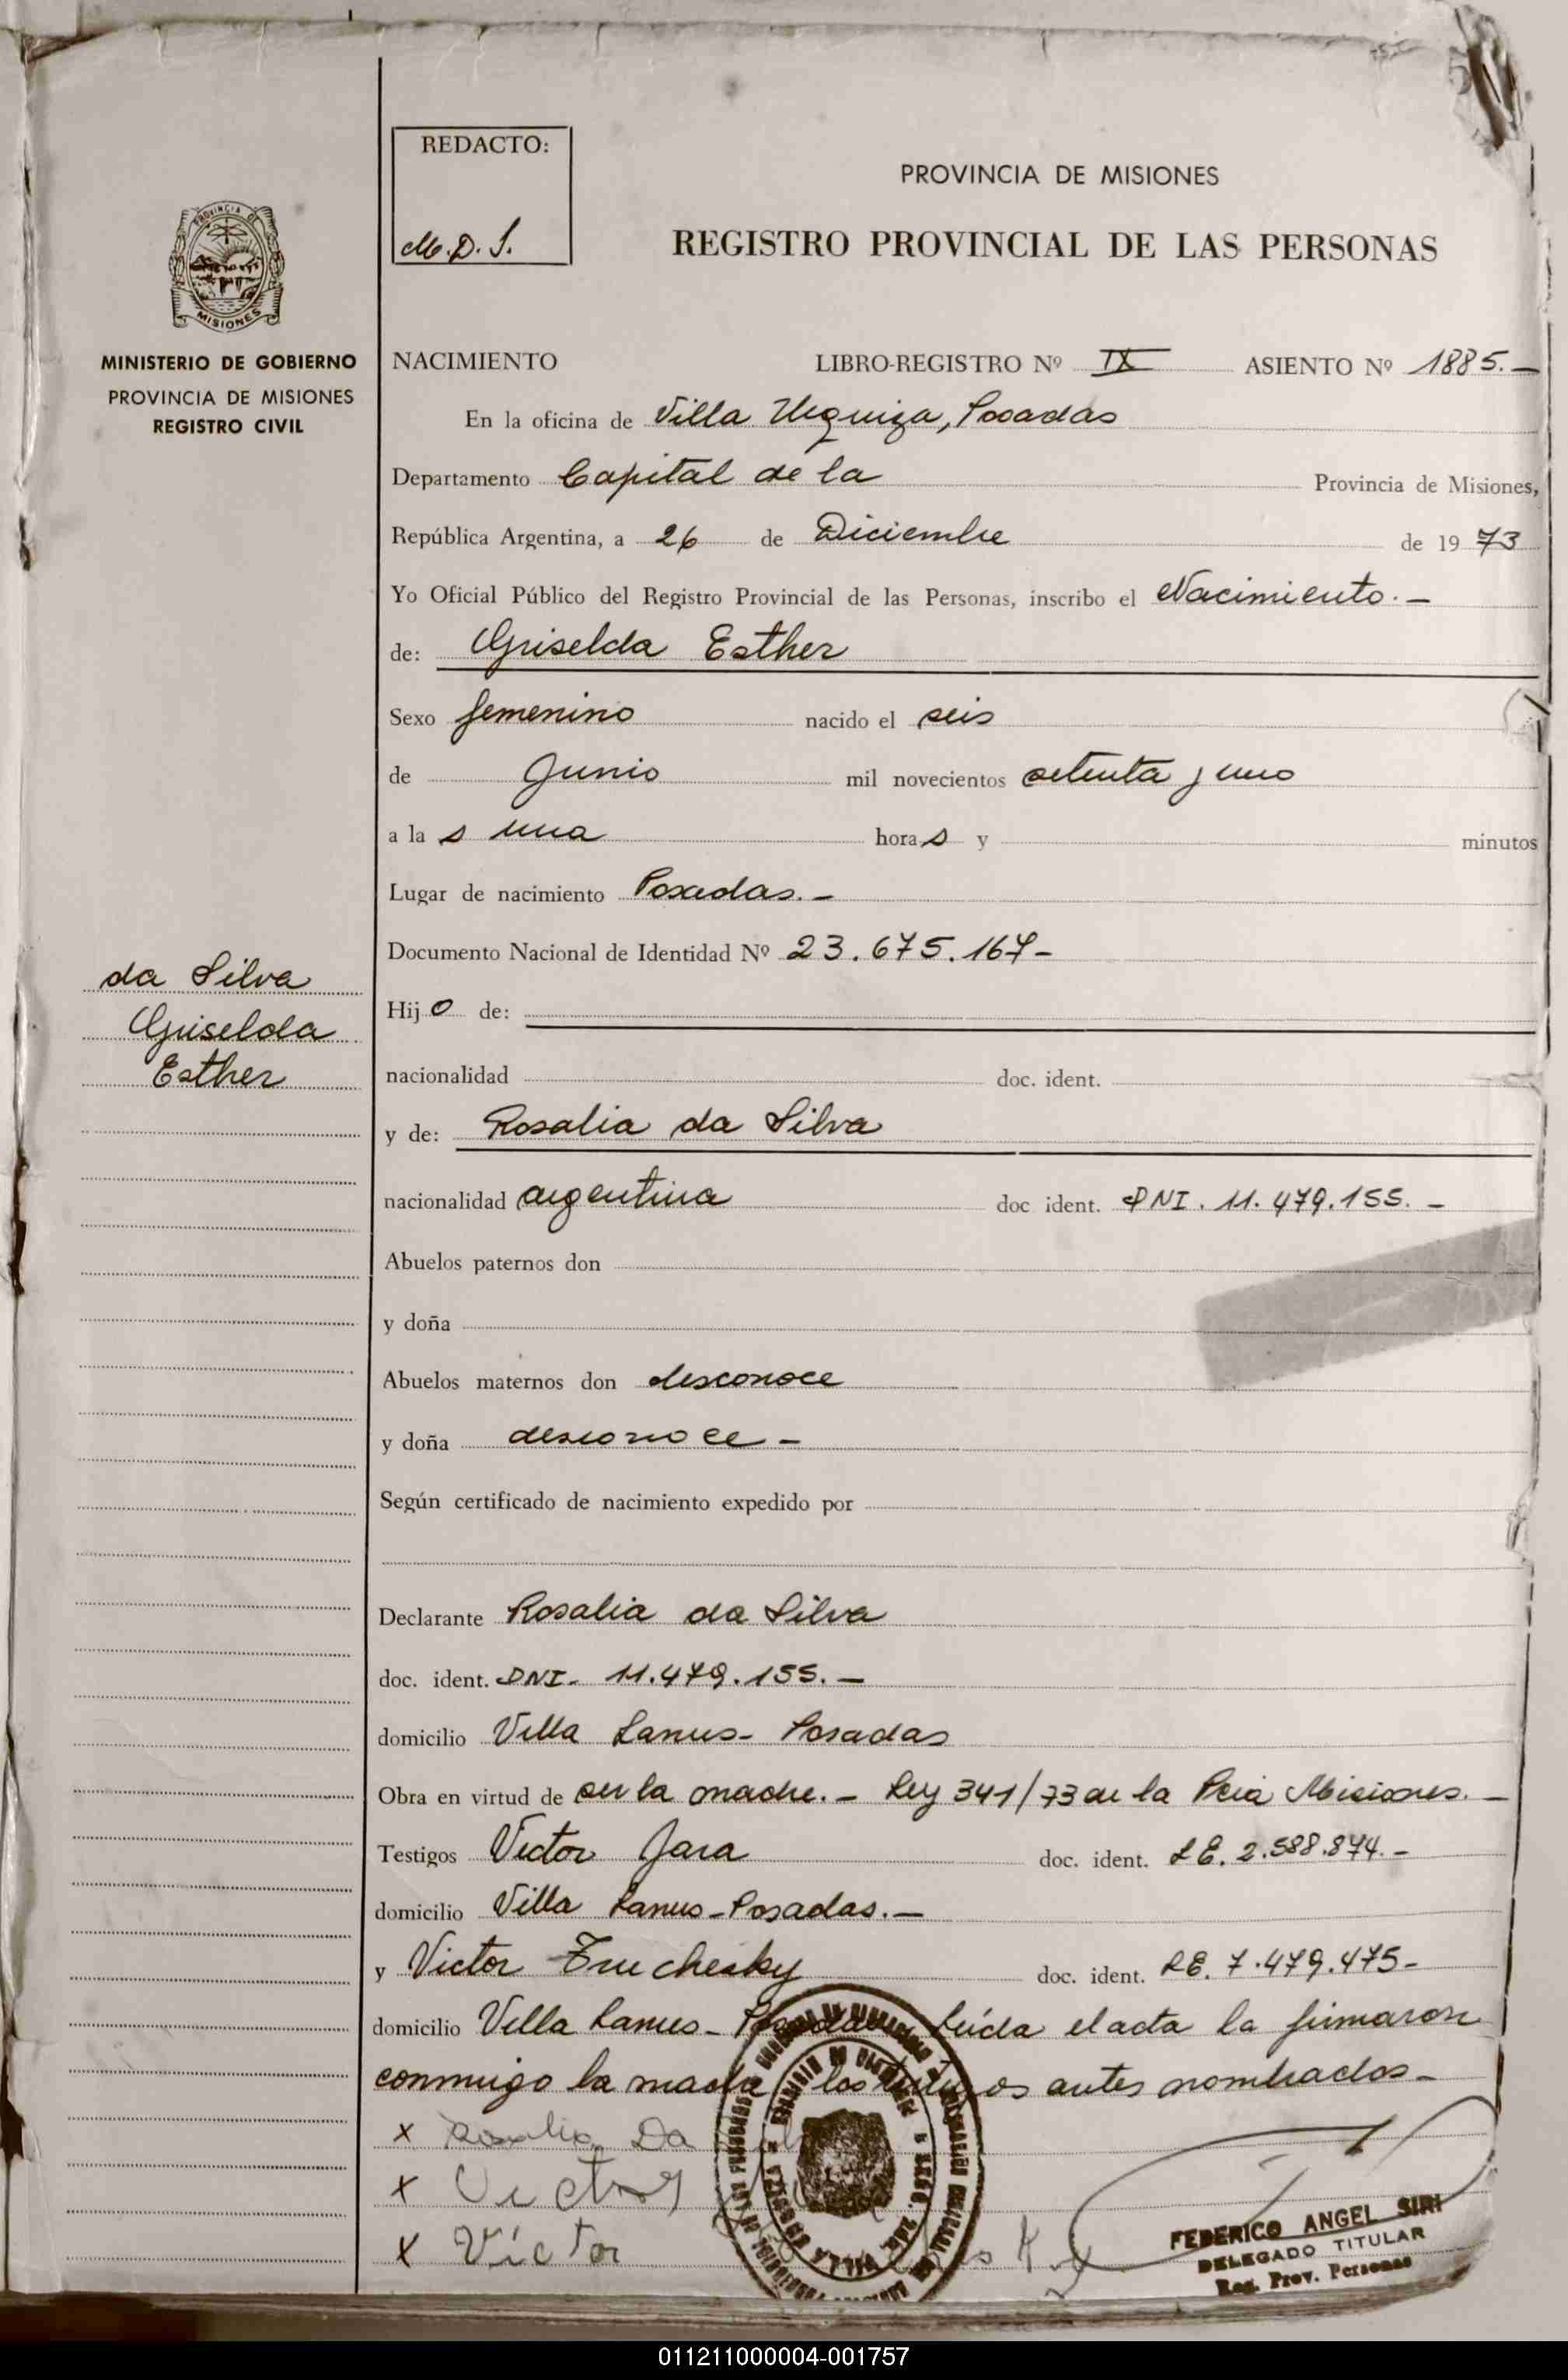 REDACTO:
M.D.S.
PROVINCIA DE MISIONES
REGISTRO PROVINCIAL DE LAS PERSONAS
PROVINCIA DE
MISIONES
MINISTERIO DE GOBIERNO
PROVINCIA DE MISIONES
REGISTRO CIVIL
NACIMIENTO LIBRO-REGISTRO Nº IX ASIENTO Nº 1885.-
En la oficina de Villa Urquiza, Posadas
Departamento Capital de la Provincia de Misiones,
República Argentina, a 26 de Diciembre de 1973
Yo Oficial Público del Registro Provincial de las Personas, inscribo el Nacimiento.-
de: Griselda Esther
Sexo femenino nacido el seis
de Junio mil novecientos setenta y uno
a la s una hora s y minutos
Lugar de nacimiento Posadas.-
Documento Nacional de Identidad Nº 23.675.167-
da Silva
Griselda
Esther
Hij o de:
nacionalidad doc. ident.
y de: Rosalia da Silva
nacionalidad argentina doc ident. DNI. 11.479.155.-
Abuelos paternos don
y doña
Abuelos maternos don desconoce
y doña desconoce-
Según certificado de nacimiento expedido por
Declarante Rosalia da Silva
doc. ident. DNI. 11.479.155.-
domicilio Villa Lanus- Posadas
Obra en virtud de ser la madre.- Ley 341/73 de la Pcia Misiones.-
Testigos Victor Jara doc. ident. LE. 2.588.874.-
domicilio Villa Lanus-Posadas.-
y Victor doc. ident. LE. 7.479.475-
domicilio Villa Lanus- Posadas Leída el acta la firmaron
conmigo la madre y los testigos antes nombrados-
x Rosalia Da
x Victor
x Víctor
FEDERICO ANGEL SIRI
DELEGADO TITULAR
Reg. Prov. Personas
011211000004-001757